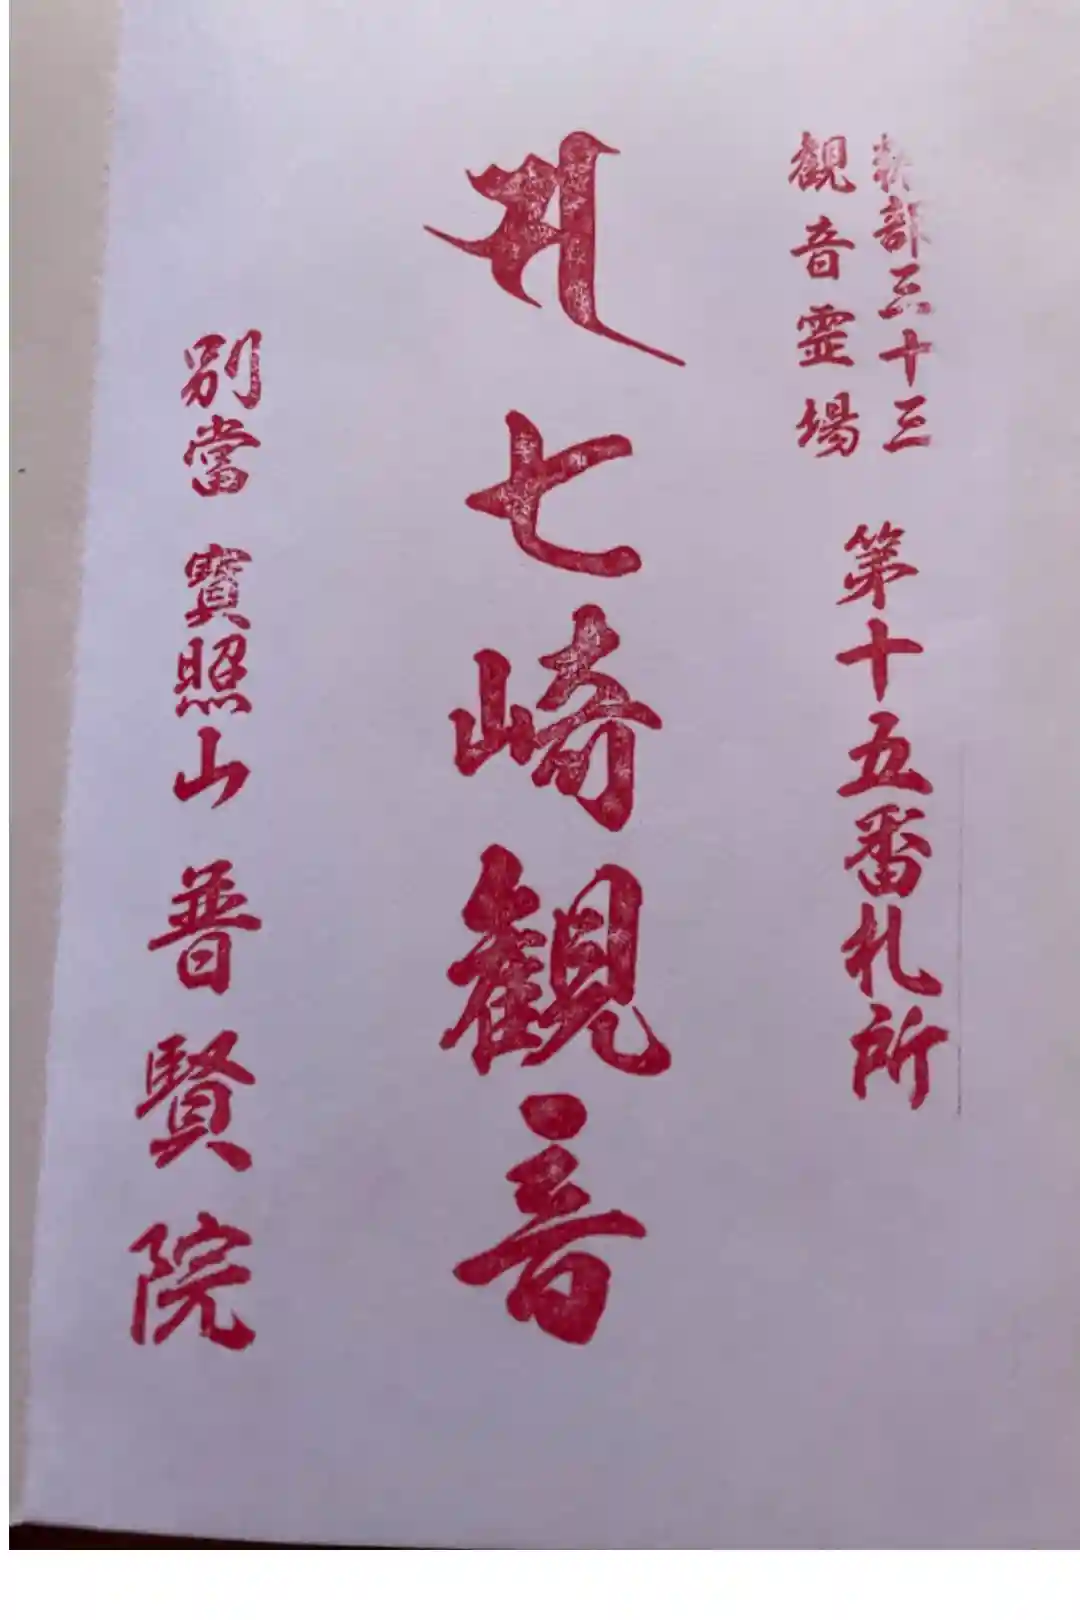 糠部三十三
觀音霊場
第十五番札所
𑖭
七崎觀音
別當 寳照山 普賢院